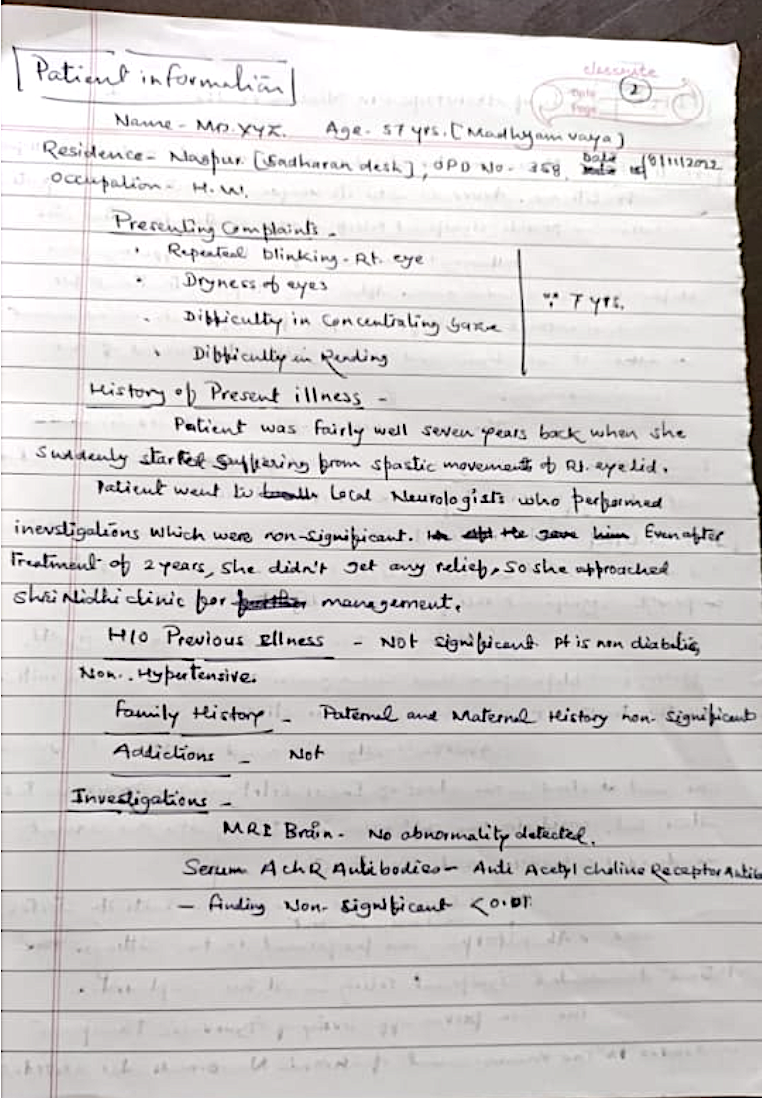 classmate
Date
Page
2
Patient information
Name - Mr. XYZ. Age - 57 yrs. [Madhyam vaya]
Residence - Nagpur [Sadharan desh]; OPD No - 358, Date 8/11/2022
Occupation - H.W.
Presenting Complaints -
• Repeated blinking - Rt. eye
• Dryness of eyes
• Difficulty in Concentrating Gaze
• Difficulty in Reading
∵ 7 yrs.
History of Present illness -
Patient was fairly well seven years back when she
Suddenly started Suffering from spastic movements of Rt. eyelid.
Patient went to Local Neurologists who performed
inevstigations which were non-significant. Even after
Treatment of 2 years, she didn't get any relief, So she approached
Shri Nidhi clinic for management.
H/O Previous Illness - Not significant Pt is non diabetic,
Non. Hypertensive.
Family History - Paternal and Maternal History non-Significant
Addictions - Not
Investigations -
MRI Brain - No abnormality detected.
Serum AchR Antibodies - Anti Acetyl choline Receptor Antib
- finding Non-Significant <0.01